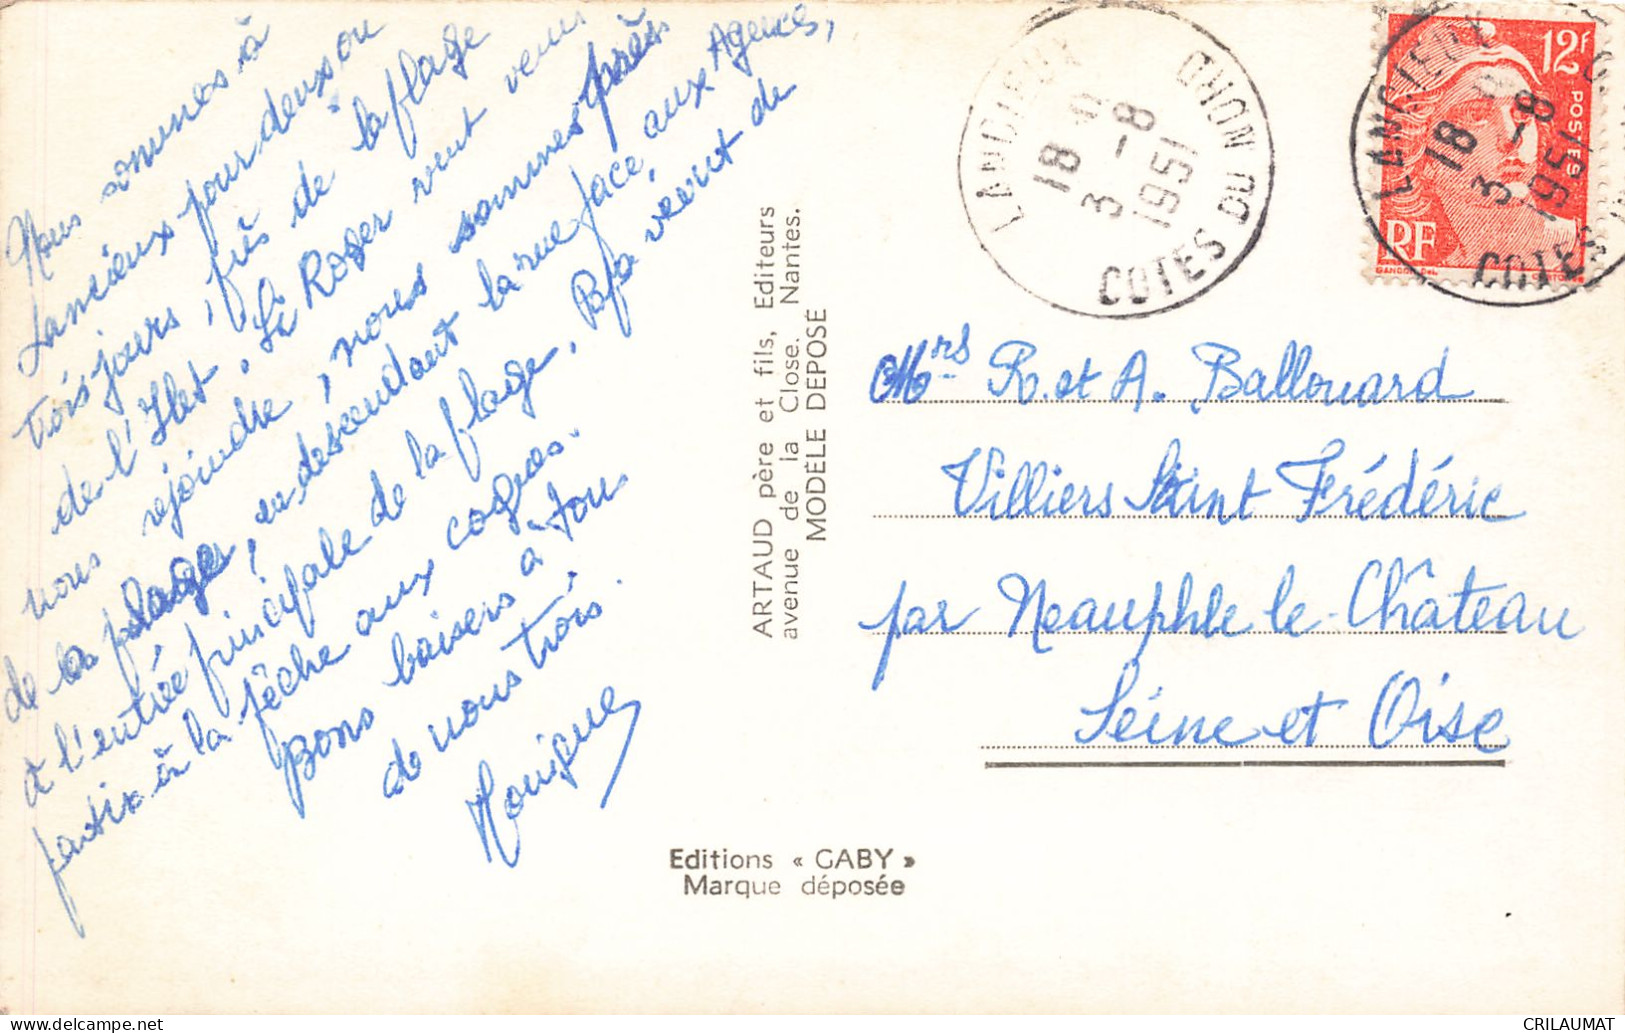 Nous sommes à
Lancieux pour deux ou
trois jours, près de la plage
de l'Islet. Si Roger veut venir
nous rejoindre, nous sommes près
de la plage, en descendant la rue face aux Agences,
à l'entrée principale de la plage. Papa vient de
partir à la pêche aux coques.
Bons baisers à tous
de nous trois.
ARTAUD père et fils, Editeurs
avenue de la Close. Nantes.
MODÈLE DÉPOSÉ
Editions « GABY »
Marque déposée
LANCIEUX
18 H
3 - 8
1951
COTES DU NORD
12F
POSTES
RF
GANDON DEL.
LANCIEUX
18 H
3 - 8
1951
COTES
Mrs R. et A. Ballouard
Villiers Saint Frédéric
par Neauphle le-Château
Seine et Oise
CRILAUMAT